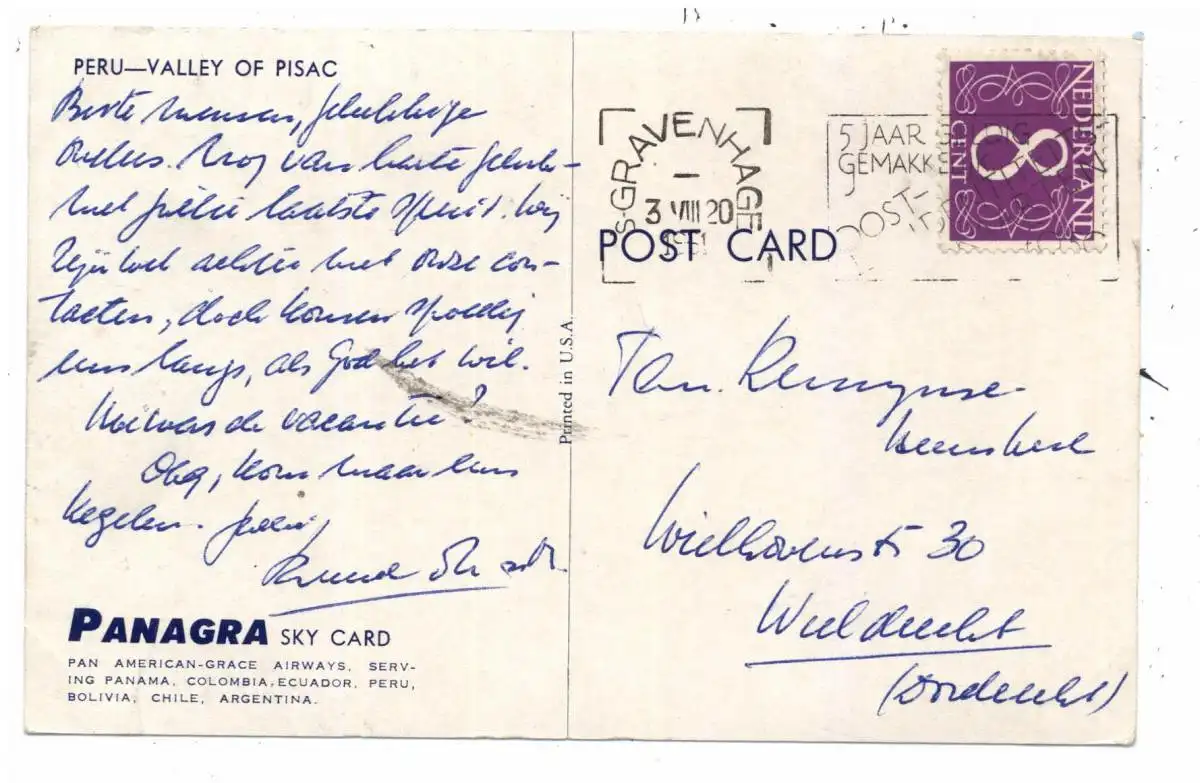 PERU—VALLEY OF PISAC
Beste mensen, gelukkige
ouders. Nog van harte geluk-
met jullie laatste spruit. Wij
zijn wel achter met onze con-
tacten, doch komen spoedig
eens langs, als God het wil.
Hoe was de vacantie?
Oh ja, kom maar eens
kegelen.
PANAGRA SKY CARD
PAN AMERICAN-GRACE AIRWAYS, SERV-
ING PANAMA, COLOMBIA, ECUADOR, PERU,
BOLIVIA, CHILE, ARGENTINA.
Printed in U.S.A.
's-GRAVENHAGE
3 VIII 20
5 JAAR GELDIG
GEMAKKELIJK
POST-
NEDERLAND
8
CENT
POST CARD
Fam.
Heemskerk
Wielhovenstr 30
Wieldrecht
(Dordrecht)